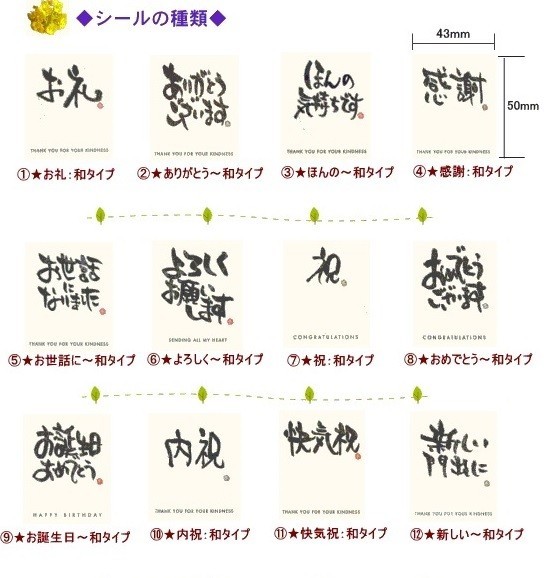 ◆シールの種類◆
43mm
50mm
お礼
THANK YOU FOR YOUR KINDNESS
①★お礼:和タイプ
ありがとう
ございます
THANK YOU FOR YOUR KINDNESS
②★ありがとう～和タイプ
ほんの
気持ちです
THANK YOU FOR YOUR KINDNESS
③★ほんの～和タイプ
感謝
THANK YOU FOR YOUR KINDNESS
④★感謝:和タイプ
お世話に
なりました
THANK YOU FOR YOUR KINDNESS
⑤★お世話に～和タイプ
よろしく
お願い
します
SENDING ALL MY HEART
⑥★よろしく～和タイプ
祝
CONGRATULATIONS
⑦★祝:和タイプ
おめでとう
ございます
CONGRATULATIONS
⑧★おめでとう～和タイプ
お誕生日
おめでとう
HAPPY BIRTHDAY
⑨★お誕生日～和タイプ
内祝
THANK YOU FOR YOUR KINDNESS
⑩★内祝:和タイプ
快気祝
THANK YOU FOR YOUR KINDNESS
⑪★快気祝:和タイプ
新しい
門出に
THANK YOU FOR YOUR KINDNESS
⑫★新しい～和タイプ